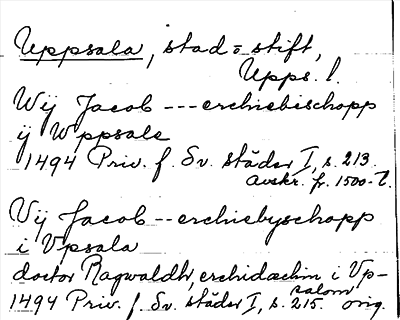 Uppsala, stad = stift,
Upps. l.
Wij Jacob --- erchiebischopp
ij Wppsale
1494 Priv. f. Sv. städer I, s. 213.
Avskr. fr. 1500-t.
Vij Jacob -- erchiebyschopp
i Vpsala
doctor Ragwaldh, erchidiæchin i Vp-
salom
1494 Priv. f. Sv. städer I, s. 215. orig.